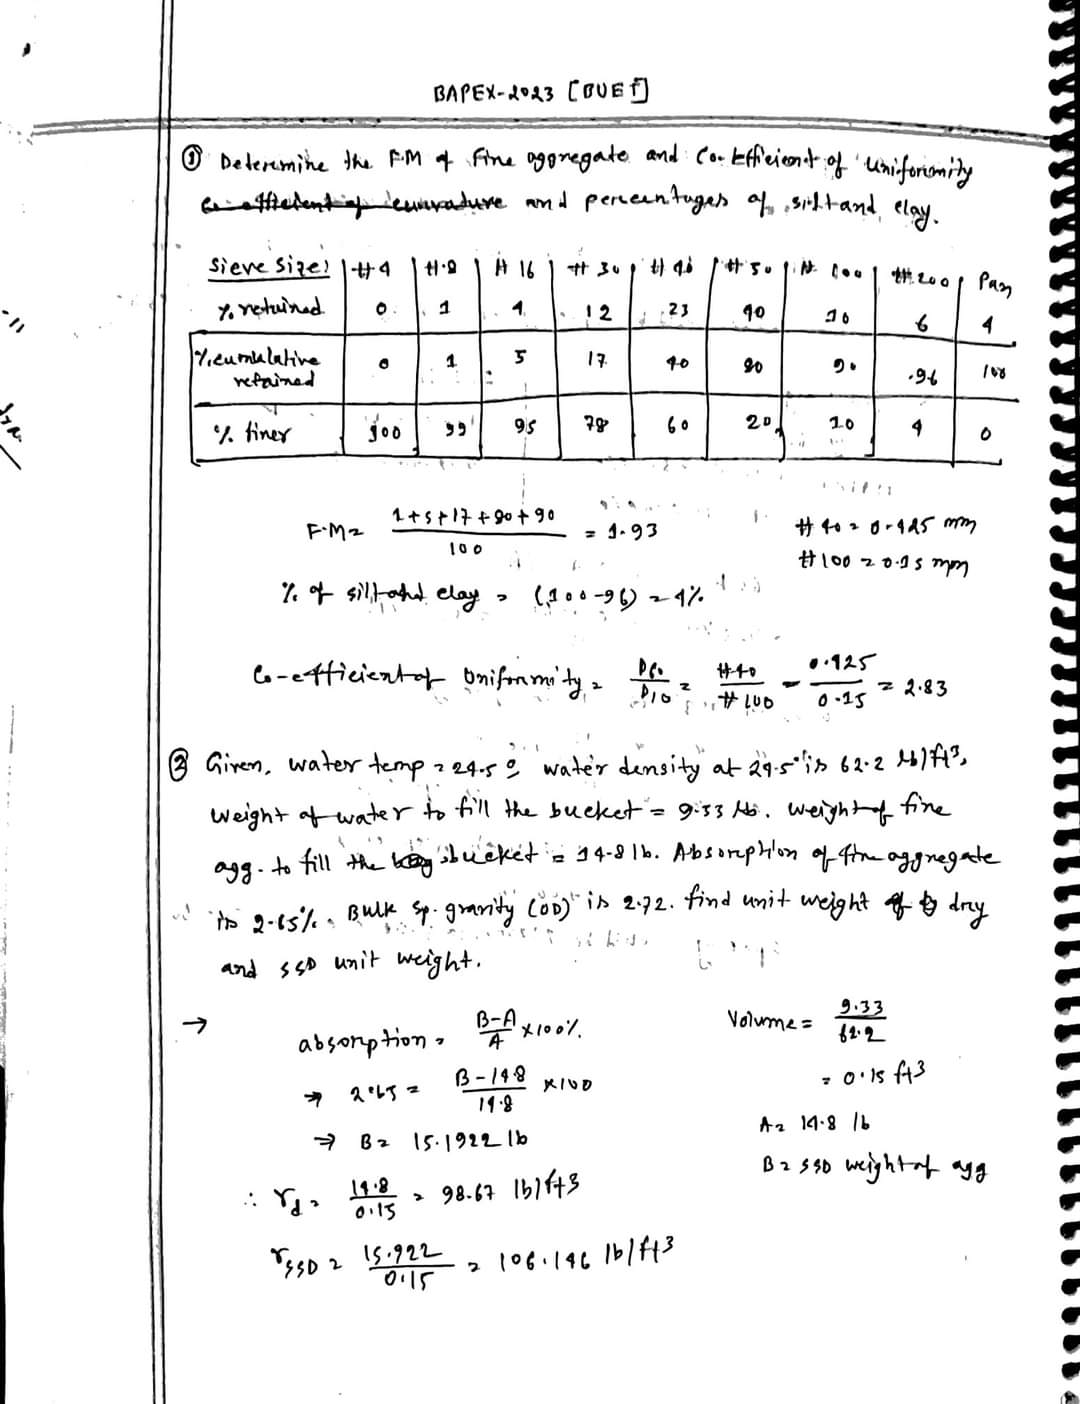 BAPEX-2023 [BUET]
① Determine the F.M of fine aggregate and Co-Efficient of Uniformity
Co-efficient of curvature and percentages of silt and clay.
Sieve Size: #4 #8 #16 #30 #40 #50 #100 #200 Pan
% retained 0 1 4 12 23 40 10 6 4
% cumulative retained 0 1 5 17 40 80 90 96 100
% finer 100 99 95 78 60 20 10 4 0
F.M = (1+5+17+80+90)/100 = 1.93
#40 = 0.425 mm
#100 = 0.15 mm
% of silt and clay = (100-96) = 4%
Co-efficient of Uniformity = D60/D10 = #40/#100 = 0.425/0.15 = 2.83
② Given, water temp = 24.5° water density at 24.5° is 62.2 lb/ft³,
weight of water to fill the bucket = 9.33 lb. weight of fine
agg. to fill the bucket = 14.8 lb. Absorption of fine aggregate
is 2.65%. Bulk sp. gravity (OD) is 2.72. find unit weight of dry
and SSD unit weight.
→ absorption = (B-A)/A ×100%.
⇒ 2.65 = (B-14.8)/14.8 ×100
⇒ B = 15.1922 lb
∴ γd = 14.8/0.15 = 98.67 lb/ft3
γSSD = 15.922/0.15 = 106.146 lb/ft3
Volume = 9.33/62.2
= 0.15 ft3
A = 14.8 lb
B = SSD weight of agg